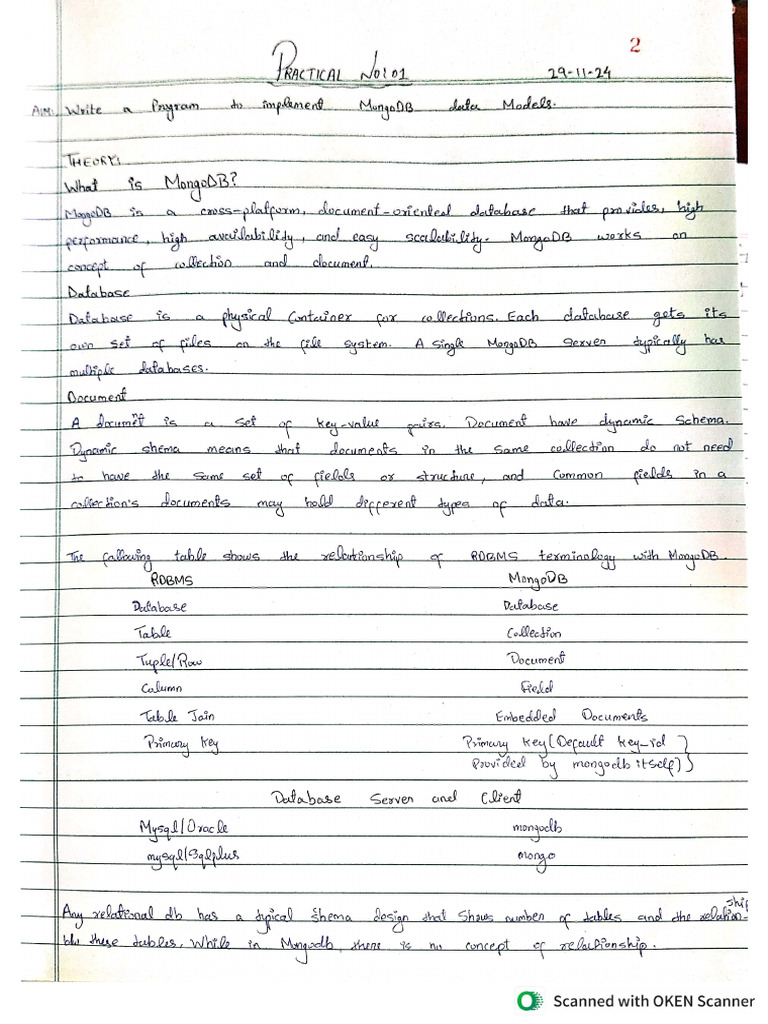 2
PRACTICAL NO:01
29-11-24
AIM: Write a Program to implement MongoDB data Models.
THEORY:
What is MongoDB?
MongoDB is a cross-platform, document-oriented database that provides, high
performance, high availability, and easy scalability. MongoDB works on
concept of collection and document.
Database
Database is a physical Container for collections. Each database gets its
own set of files on the file system. A single MongoDB Server typically has
multiple databases.
Document
A document is a set of key-value pairs. Document have dynamic Schema.
Dynamic shema means that documents in the same collection do not need
to have the same set of fields or structure, and Common fields in a
collection's documents may hold different types of data.
The following table shows the relationship of RDBMS terminology with MongoDB.
RDBMS MongoDB
Database Database
Table Collection
Tuple/Row Document
Column Field
Table Join Embedded Documents
Primary key Primary key(Default key_id
Provided by mongodb itself)
Database Server and Client
Mysql/Oracle mongodb
mysql/Sqlplus mongo
Any relational db has a typical shema design that Shows number of tables and the relation-ship
btw these tables. While in Mongodb, there is no concept of relationship.
Scanned with OKEN Scanner